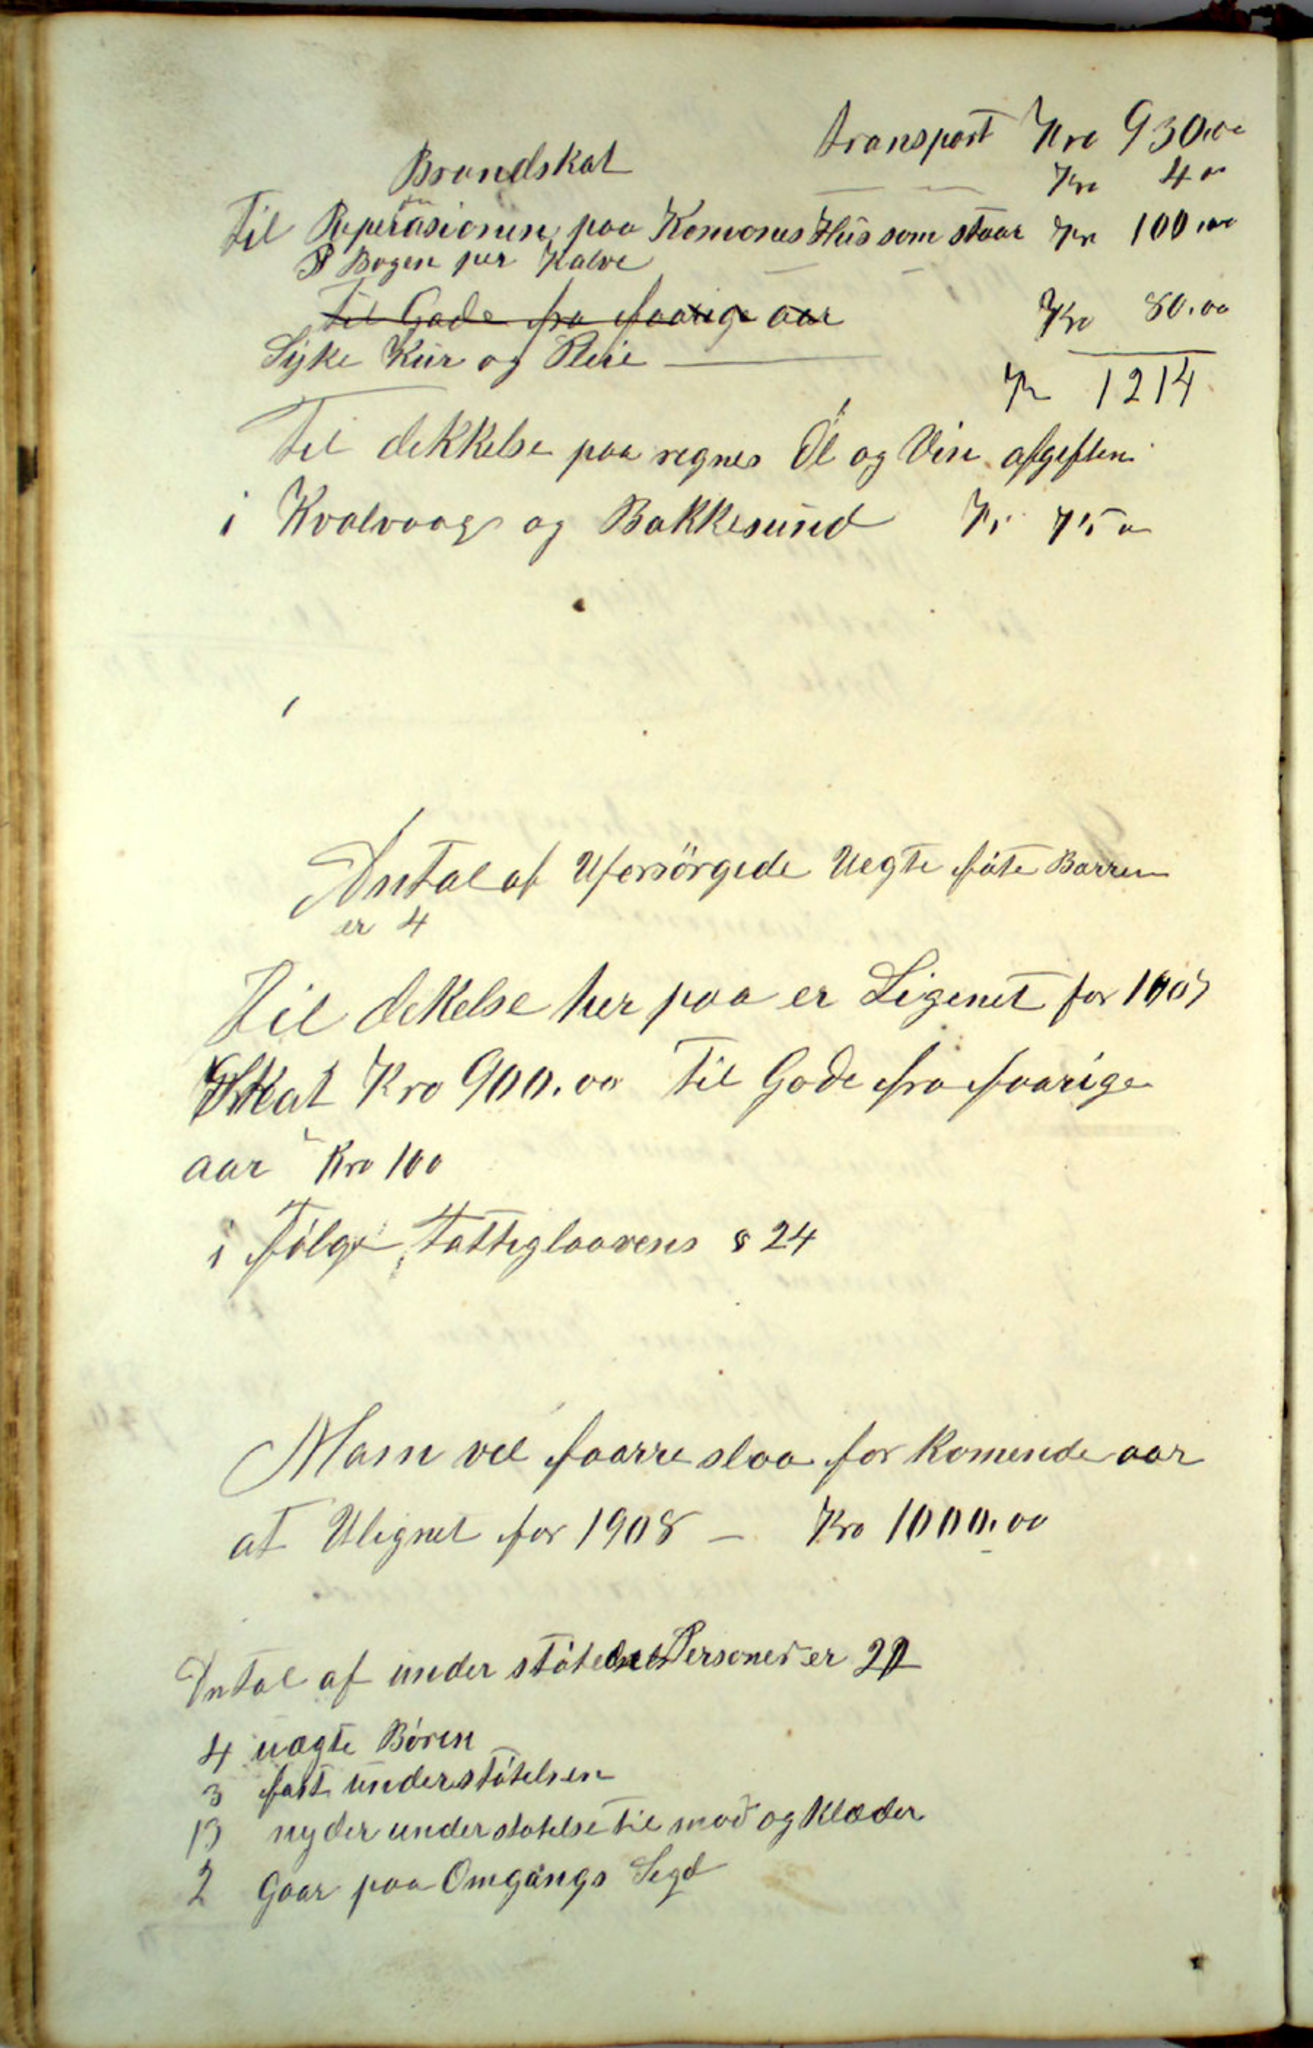 transport Kro 930.00
Brandskat Kro 4 00
Til Reperasionen paa Komones Hus som staar Kr 100.00
Bogen per Kalve
Til Gode fra faarige aar
Syke Kur og Pleie Kro 80.00
Kr 1214
Til dekkelse paa regnes Øl og Vin afgiften
i Kvalvaag og Bakkesund Kr 75 00
Antal af Uforsörgede Uegte föte Barren
er 4
Til dekelse her paa er Ligenet for 1907
Skat Kro 900.00 Til Gode fra faarige
aar Kro 100
i følge Fattiglaavens § 24
Mann vil faarre slaa for Komende aar
at Ulignet for 1908 — Kro 1000.00
Antal af under stötede Personer er 22
4 uægte Börn
3 fast understötelsen
13 nyder under stotelse Til mad og Klæder
2 Gaar paa Omgangs Legd